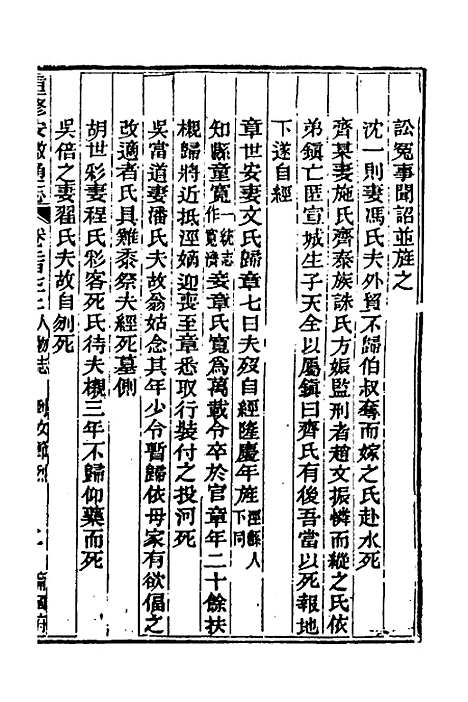 訟冤事聞詔並旌之
沈一則妻馮氏夫外貿不歸伯叔奪而嫁之氏赴水死
齊某妻施氏齊泰族誅氏方娠監刑者趙文振憐而縱之氏依
弟鎮亡匿宣城生子天全以屬鎮曰齊氏有後吾當以死報地
下遂自經
章世安妻文氏歸章七日夫歿自經隆慶年旌涇縣人下同
知縣童寬一統志作寬濟妾章氏寬為萬載令卒於官章年二十餘扶
櫬歸將近抵涇嫡迎喪至章悉取行裝付之投河死
吳當道妻潘氏夫故翁姑念其年少令暫歸依母家有欲偪之
改適者氏具雞黍祭夫經死墓側
胡世彩妻程氏彩客死氏待夫櫬三年不歸仰藥而死
吳倍之妻翟氏夫故自刎死
重修安徽通志 卷二百七十七 人物志 列女 節烈 寧國府